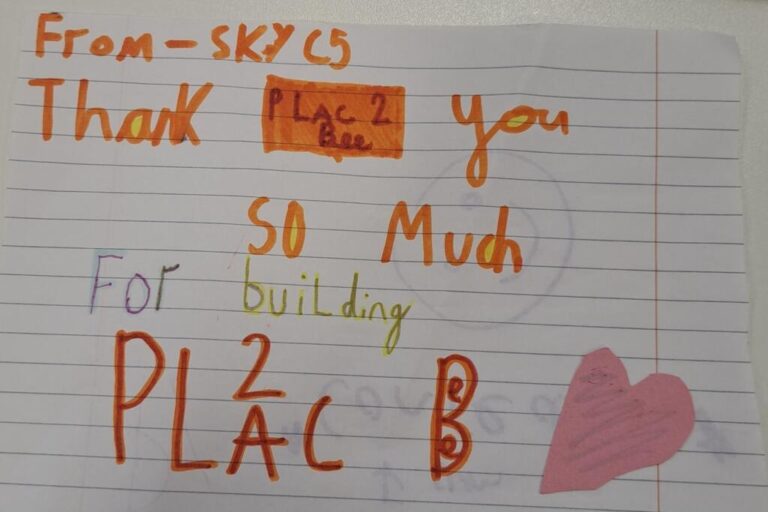 From - SKY C5
Thank PLAC 2 Bee you
So Much
For building
2
PLAC Bee